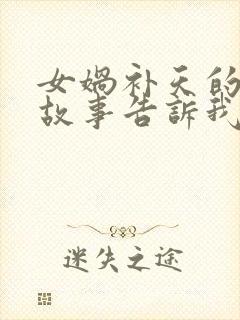 女媧补天的
故事告訴我
迷失之途